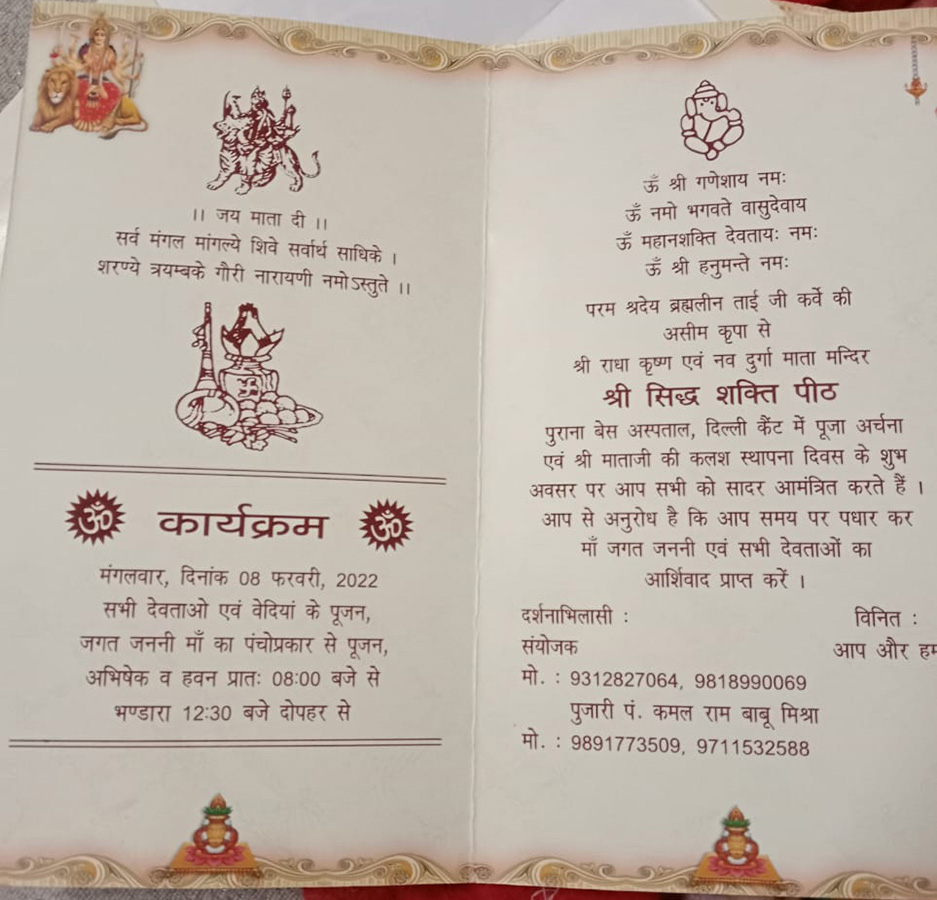 ।। जय माता दी ।।
सर्व मंगल मांगल्ये शिवे सर्वार्थ साधिके ।
शरण्ये त्रयम्बके गौरी नारायणी नमोऽस्तुते ।।
ॐ कार्यक्रम ॐ
मंगलवार, दिनांक 08 फरवरी, 2022
सभी देवताओ एवं वेदियां के पूजन,
जगत जननी माँ का पंचोप्रकार से पूजन,
अभिषेक व हवन प्रातः 08:00 बजे से
भण्डारा 12:30 बजे दोपहर से
ऊँ श्री गणेशाय नमः
ऊँ नमो भगवते वासुदेवाय
ऊँ महानशक्ति देवतायः नमः
ऊँ श्री हनुमन्ते नमः
परम श्रदेय ब्रह्मलीन ताई जी कर्वे की
असीम कृपा से
श्री राधा कृष्ण एवं नव दुर्गा माता मन्दिर
श्री सिद्ध शक्ति पीठ
पुराना बेस अस्पताल, दिल्ली कैंट में पूजा अर्चना
एवं श्री माताजी की कलश स्थापना दिवस के शुभ
अवसर पर आप सभी को सादर आमंत्रित करते हैं ।
आप से अनुरोध है कि आप समय पर पधार कर
माँ जगत जननी एवं सभी देवताओं का
आर्शिवाद प्राप्त करें ।
दर्शनाभिलासी : विनित :
संयोजक आप और हम
मो. : 9312827064, 9818990069
पुजारी पं. कमल राम बाबू मिश्रा
मो. : 9891773509, 9711532588